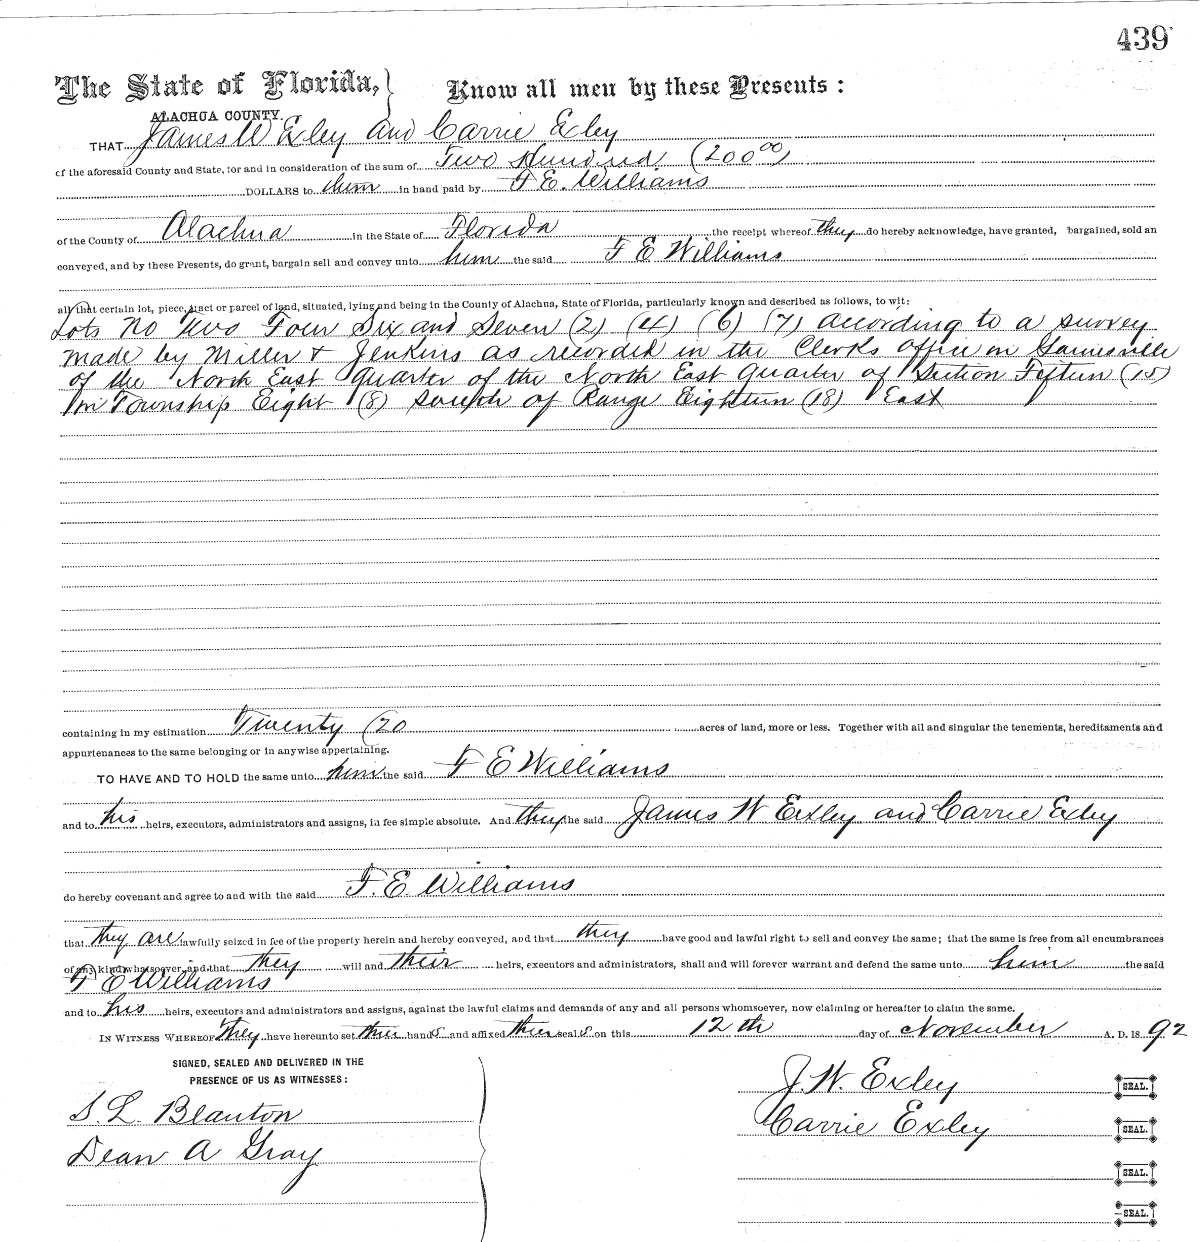 439
The State of Florida,} Know all men by these Presents:
ALACHUA COUNTY.
THAT James W Exley and Carrie Exley
of the aforesaid County and State, for and in consideration of the sum of Two Hundred (200 00)
DOLLARS to him in hand paid by F E. Williams
of the County of Alachua in the State of Florida the receipt whereof they do hereby acknowledge, have granted, bargained, sold an
conveyed, and by these Presents, do grant, bargain sell and convey unto him the said F E Williams
all that certain lot, piece, tract or parcel of land, situated, lying and being in the County of Alachua, State of Florida, particularly known and described as follows, to wit:
Lots No Two Four Six and Seven (2) (4) (6) (7) according to a survey
made by Miller & Jenkins as recorded in the Clerks office in Gainesville
of the North East quarter of the North East Quarter of Section Fifteen (15)
in Township Eight (8) South of Range Eighteen (18) East
containing in my estimation Twenty (20 acres of land, more or less. Together with all and singular the tenements, hereditaments and
appurtenances to the same belonging or in anywise appertaining.
TO HAVE AND TO HOLD the same unto him the said F E Williams
and to his heirs, executors, administrators and assigns, in fee simple absolute. And they the said James W Exley and Carrie Exley
do hereby covenant and agree to and with the said F. E. Williams
that they are lawfully seized in fee of the property herein and hereby conveyed, and that they have good and lawful right to sell and convey the same; that the same is free from all encumbrances
of any kind whatsoever, and that they will and their heirs, executors and administrators, shall and will forever warrant and defend the same unto him the said
F E Williams
and to his heirs, executors and administrators and assigns, against the lawful claims and demands of any and all persons whomsoever, now claiming or hereafter to claim the same.
IN WITNESS WHEREOF they have hereunto set their hand s and affixed their seal s on this 12th day of November A. D. 18 92
SIGNED, SEALED AND DELIVERED IN THE
PRESENCE OF US AS WITNESSES:
J. W. Exley SEAL.
S. L. Blanton
Carrie Exley SEAL.
Dean A Gray
SEAL.
SEAL.